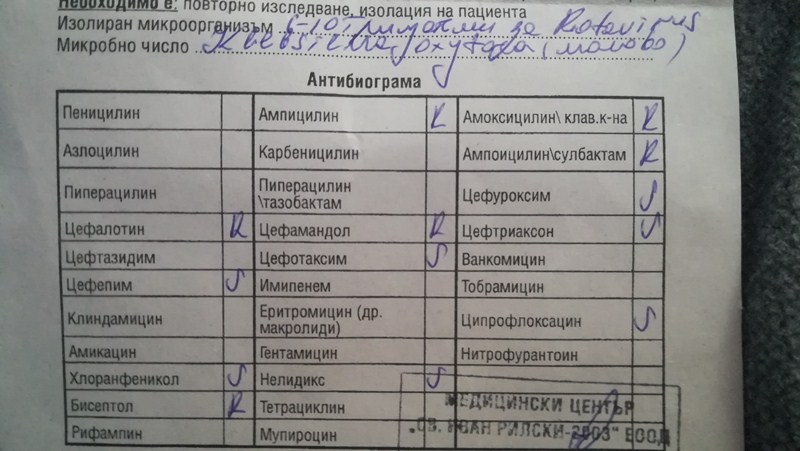 Необходимо е: повторно изследване, изолация на пациента
Изолиран микроорганизъм за Rotavirus
Микробно число Klebsiella oxytoca (малово)
Антибиограма
Пеницилин Ампицилин R Амоксицилин\ клав.к-на R
Азлоцилин Карбеницилин Ампоицилин\сулбактам R
Пиперацилин Пиперацилин \тазобактам Цефуроксим S
Цефалотин R Цефамандол R Цефтриаксон S
Цефтазидим Цефотаксим S Ванкомицин
Цефепим S Имипенем Тобрамицин
Клиндамицин Еритромицин (др. макролиди) Ципрофлоксацин S
Амикацин Гентамицин Нитрофурантоин
Хлоранфеникол S Нелидикс S
Бисептол R Тетрациклин
Рифампин Мупироцин
МЕДИЦИНСКИ ЦЕНТЪР
„СВ. ИВАН РИЛСКИ-2003" ЕООД